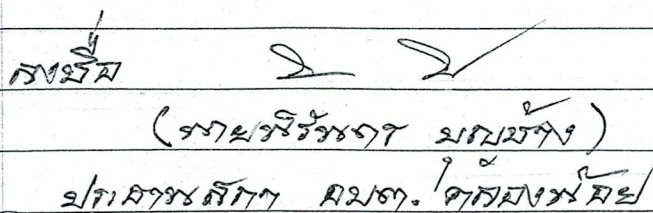 ลงชื่อ
(นายนิรันดร บุญช้าง)
ประธานสภา อบต. คลองน้อย